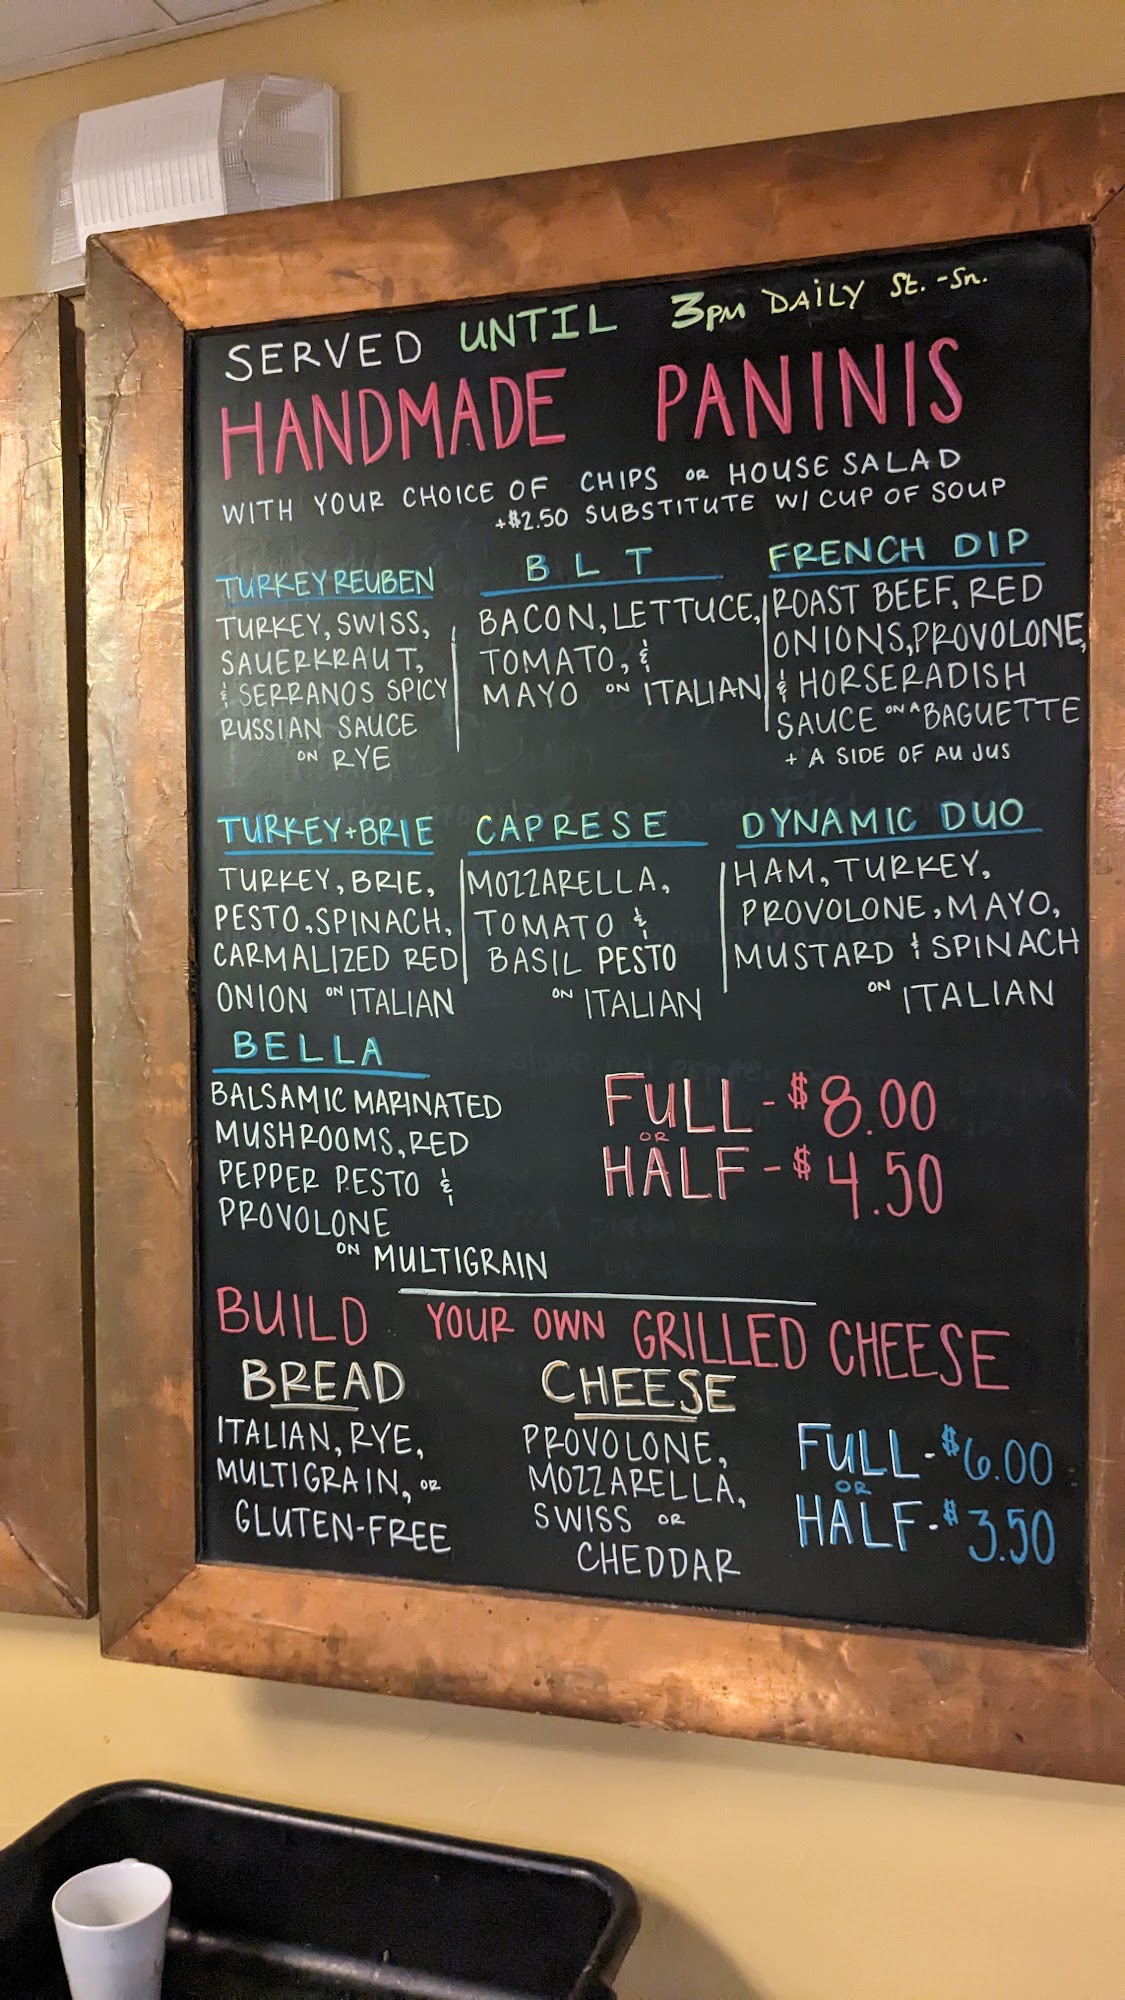 SERVED UNTIL 3PM DAILY St. - Sn.
HANDMADE PANINIS
WITH YOUR CHOICE OF CHIPS OR HOUSE SALAD
+$2.50 SUBSTITUTE W/ CUP OF SOUP
TURKEY REUBEN
TURKEY, SWISS,
SAUERKRAUT,
& SERRANOS SPICY
RUSSIAN SAUCE
ON RYE
BLT
BACON, LETTUCE,
TOMATO, &
MAYO ON ITALIAN
FRENCH DIP
ROAST BEEF, RED
ONIONS, PROVOLONE,
& HORSERADISH
SAUCE ON A BAGUETTE
+ A SIDE OF AU JUS
TURKEY+BRIE
TURKEY, BRIE,
PESTO, SPINACH,
CARMALIZED RED
ONION ON ITALIAN
CAPRESE
MOZZARELLA,
TOMATO &
BASIL PESTO
ON ITALIAN
DYNAMIC DUO
HAM, TURKEY,
PROVOLONE, MAYO,
MUSTARD & SPINACH
ON ITALIAN
BELLA
BALSAMIC MARINATED
MUSHROOMS, RED
PEPPER PESTO &
PROVOLONE
ON MULTIGRAIN
FULL - $8.00
OR
HALF - $4.50
BUILD YOUR OWN GRILLED CHEESE
BREAD
ITALIAN, RYE,
MULTIGRAIN, OR
GLUTEN-FREE
CHEESE
PROVOLONE,
MOZZARELLA,
SWISS OR
CHEDDAR
FULL - $6.00
OR
HALF - $3.50